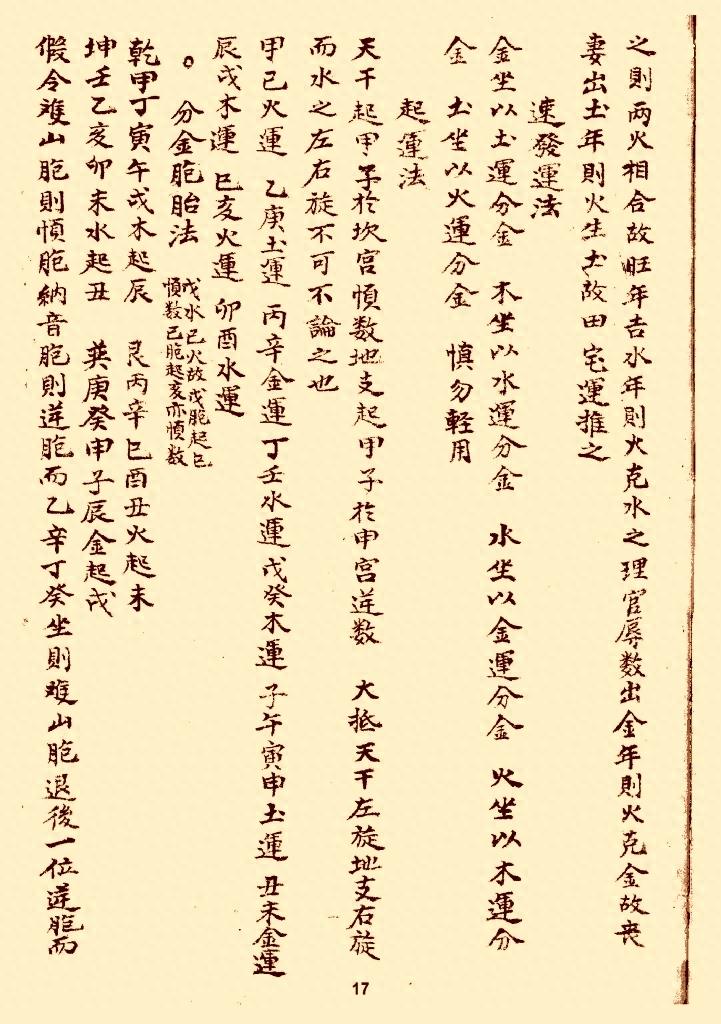 之則兩火相合故旺年吉水年則火克水之理官辱数出金年則火克金故丧
妻出土年則火生土故田宅運推之
速發運法
金坐以土運分金 木坐以水運分金 水坐以金運分金 火坐以木運分
金 土坐以火運分金 慎勿軽用
起運法
天干起甲子於坎宫順数地支起甲子於申宫逆数 大抵天干左旋地支右旋
而水之左右旋不可不論之也
甲己火運 乙庚土運 丙辛金運 丁壬水運 戊癸木運 子午寅申土運 丑未金運
辰戌木運 巳亥火運 卯酉水運
○ 分金胞胎法 戊水己火故戊胞起巳
順数己胞起亥亦順数
乾甲丁寅午戌木起辰 艮丙辛巳酉丑火起未
坤壬乙亥卯未水起丑 巽庚癸申子辰金起戌
假令难山胞則順胞納音胞則逆胞而乙辛丁癸坐則难山胞退後一位逆胞而
17